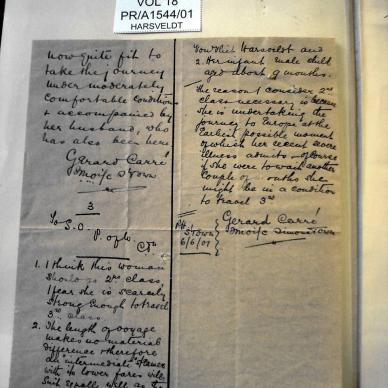 VOL 18
PR/A1544/01
HARSVELDT
now quite fit to
take the journey
under moderately
comfortable conditions
& accompanied by
her husband, who
has also been here
Gerard Carré
Smoifc S Town
3
To S.O.
P. of W. C.Tn
1. I think this woman
should go 2nd class,
I fear she is scarcely
strong enough to travel
3rd class
2. The length of voyage
makes no material
difference & therefore
an "intermediate" steamer
with its lower fares will
suit equally well as the
Harsveldt and
2. Her infant male child
aged about 9 months.
The reason I consider 2nd
class necessary is because
she is undertaking the
journey to Europe at the
earliest possible moment
of which her recent severe
illness admits - of course
if she were to wait another
couple of months she
might be in a condition
to travel 3rd
Gerard Carré
Smoifc Simonstown
S'Town
6/6/01